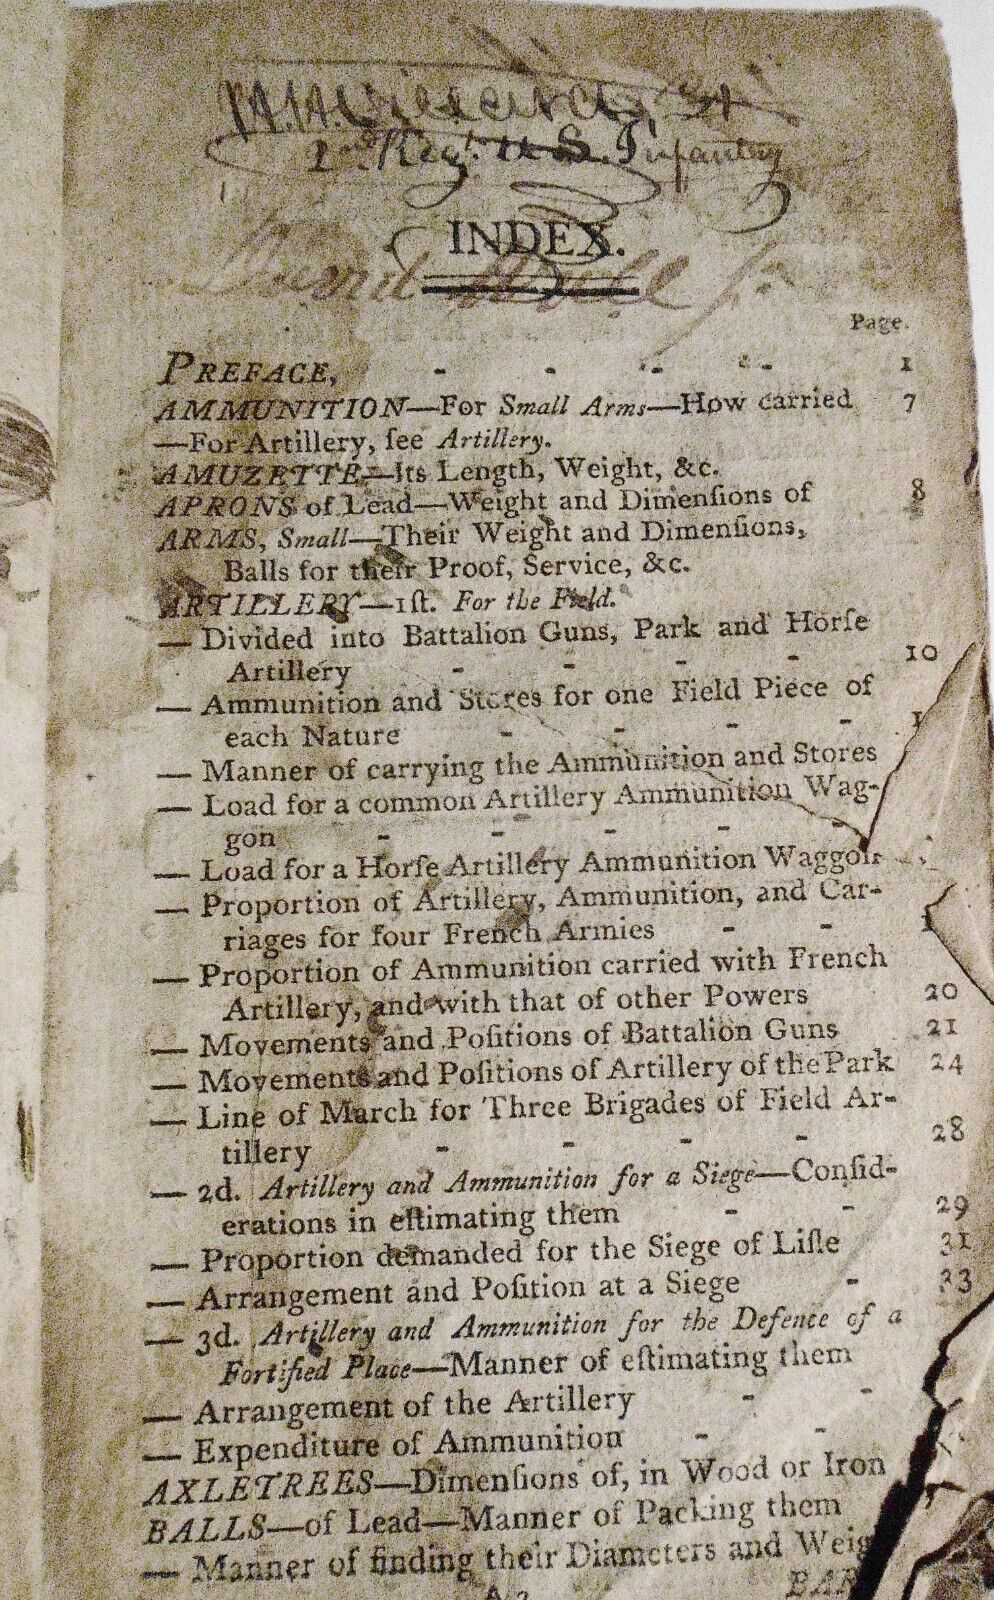 2d. Regt. U.S. Infantry
INDEX.
Page.
PREFACE, - - - - 1
AMMUNITION—For Small Arms—How carried 7
—For Artillery, ſee Artillery.
AMUZETTE—Its Length, Weight, &c.
APRONS of Lead—Weight and Dimenſions of 8
ARMS, Small—Their Weight and Dimenſions,
Balls for their Proof, Service, &c.
ARTILLERY—1ſt. For the Field.
— Divided into Battalion Guns, Park and Horſe
Artillery - - - - 10
— Ammunition and Stores for one Field Piece of
each Nature - - - -
— Manner of carrying the Ammunition and Stores
— Load for a common Artillery Ammunition Wag-
gon - - - - -
— Load for a Horſe Artillery Ammunition Waggon
— Proportion of Artillery, Ammunition, and Car-
riages for four French Armies - -
— Proportion of Ammunition carried with French
Artillery, and with that of other Powers 20
— Movements and Poſitions of Battalion Guns 21
— Movements and Poſitions of Artillery of the Park 24
— Line of March for Three Brigades of Field Ar-
tillery - - - - 28
— 2d. Artillery and Ammunition for a Siege—Conſid-
erations in eſtimating them - - 29
— Proportion demanded for the Siege of Liſle 31
— Arrangement and Poſition at a Siege - 33
— 3d. Artillery and Ammunition for the Defence of a
Fortified Place—Manner of eſtimating them
— Arrangement of the Artillery - -
— Expenditure of Ammunition - -
AXLETREES—Dimenſions of, in Wood or Iron
BALLS—of Lead—Manner of Packing them
— Manner of finding their Diameters and Weig
A 2 BAR